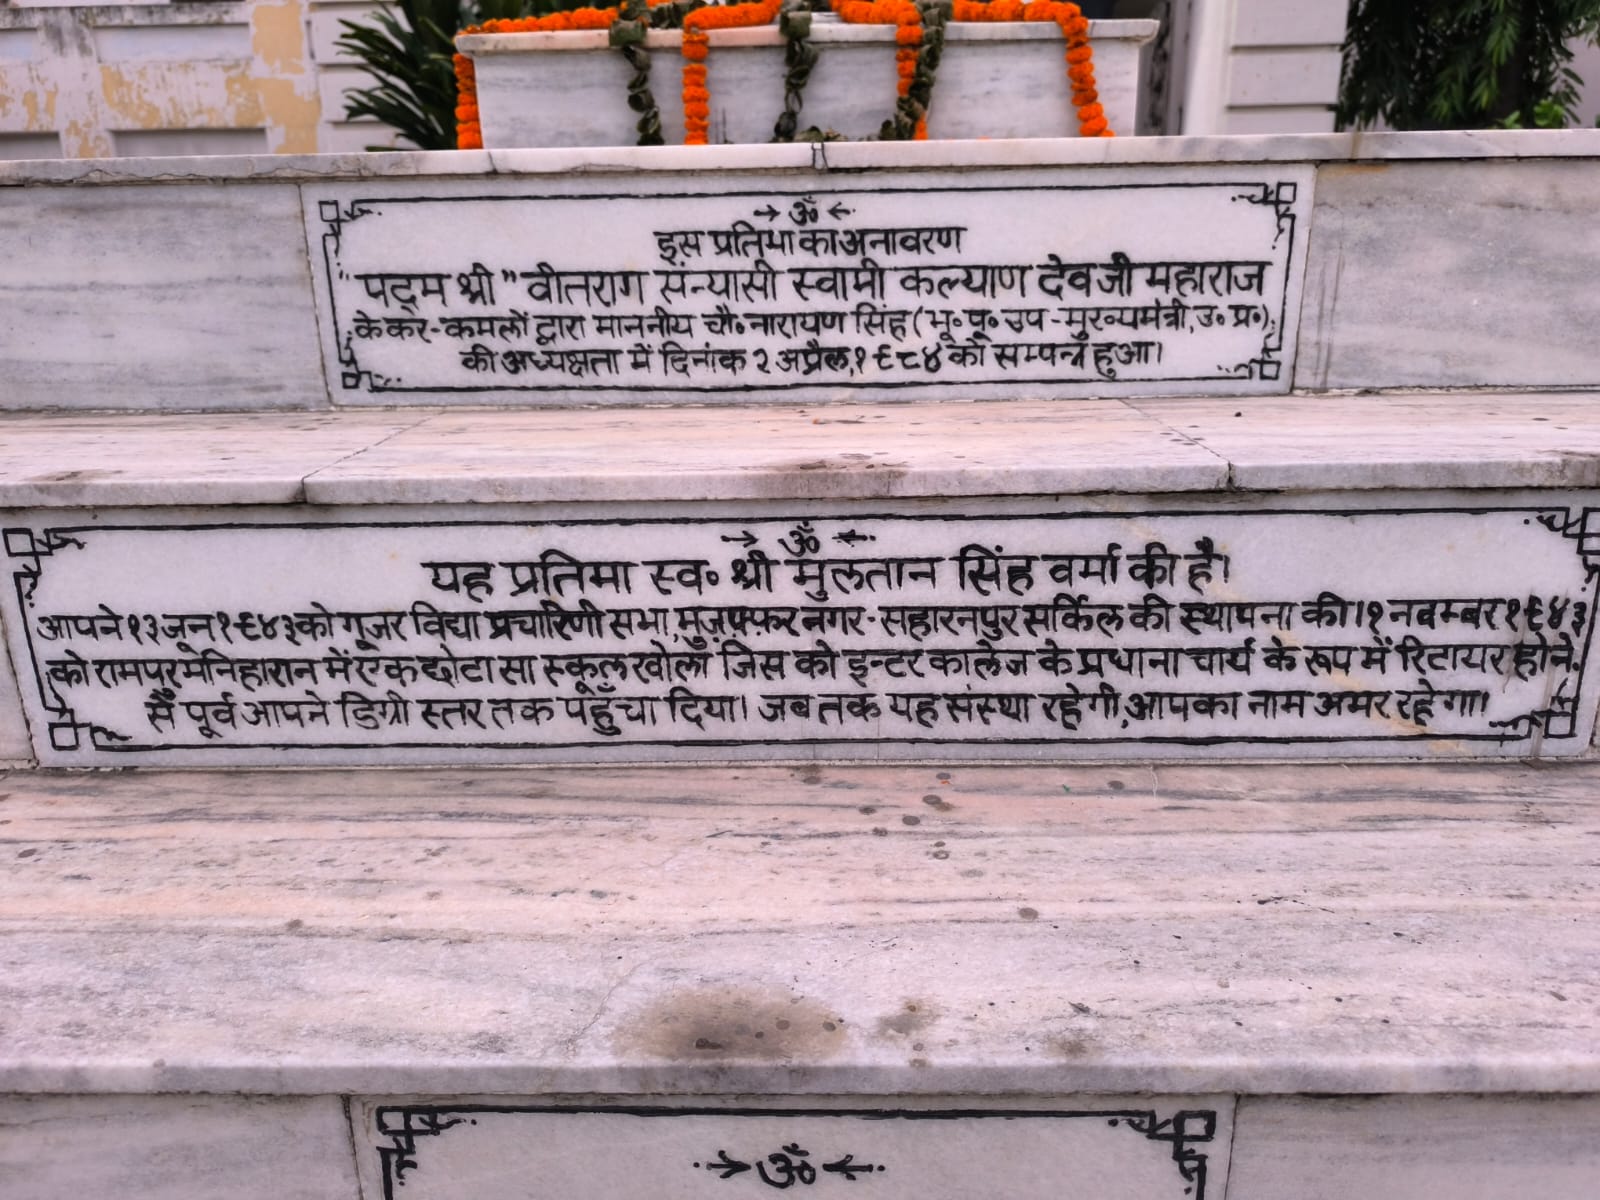 →ॐ←
इस प्रतिमा का अनावरण
"पद्म श्री" वीतराग संन्यासी स्वामी कल्याण देव जी महाराज
के कर-कमलों द्वारा माननीय चौ॰ नारायण सिंह (भू॰ पू॰ उप-मुख्यमंत्री, उ॰ प्र॰)
की अध्यक्षता में दिनांक २ अप्रैल, १९८४ को सम्पन्न हुआ।
→ॐ←
यह प्रतिमा स्व॰ श्री मुलतान सिंह वर्मा की है।
आपने १३ जून १९४३ को गूजर विद्या प्रचारिणी सभा, मुज़फ़्फ़र नगर-सहारनपुर सर्किल की स्थापना की। १ नवम्बर १९४३
को रामपुर मनिहारान में एक छोटा सा स्कूल खोला जिस को इन्टर कालेज के प्रधानाचार्य के रूप में रिटायर होने
से पूर्व आपने डिग्री स्तर तक पहुँचा दिया। जब तक यह संस्था रहेगी, आपका नाम अमर रहेगा।
→ॐ←